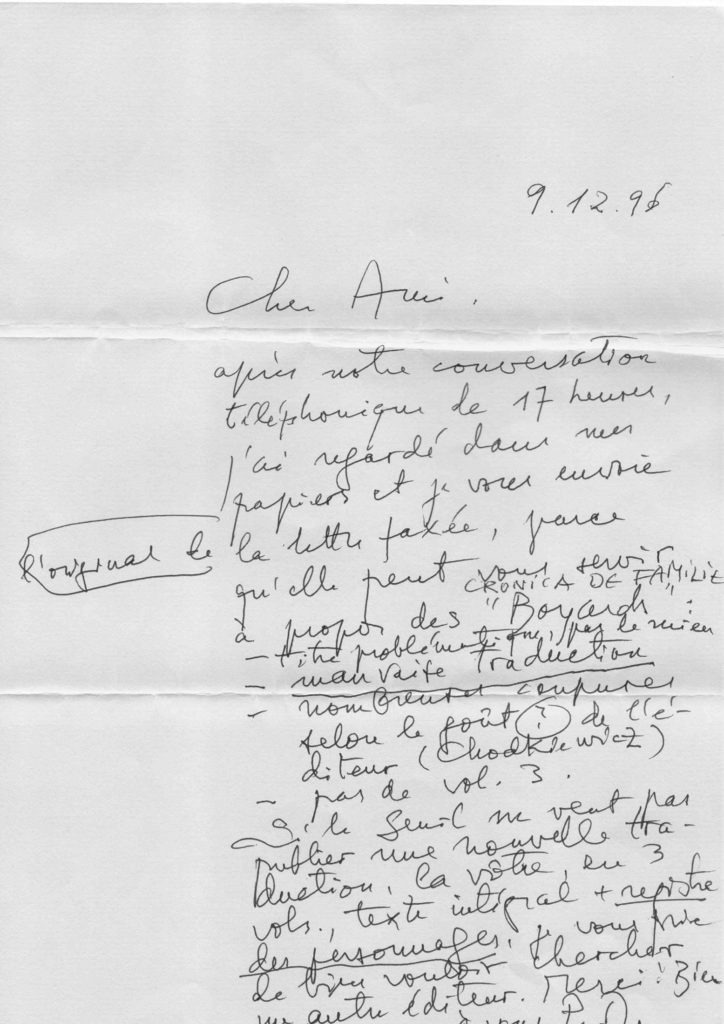 9.12.96
Cher Ami.
après notre conversation
téléphonique de 17 heures,
j'ai regardé dans mes
papiers et je vous envoie
l'original de
la lettre faxée, parce
qu'elle peut vous servir
CRONICA DE FAMILIE
à propos des "Boyards" :
- titre problématique, pas le mien
- mauvaise traduction
- nombreuses coupures
selon le goût (?) de l'é-
diteur (Chodkiewicz)
- pas de vol. 3.
Si le Seuil ne veut pas
publier une nouvelle tra-
duction, la vôtre, en 3
vols., texte intégral + registre
des personnages, je vous prie
de bien vouloir chercher
un autre éditeur. Merci! Bien